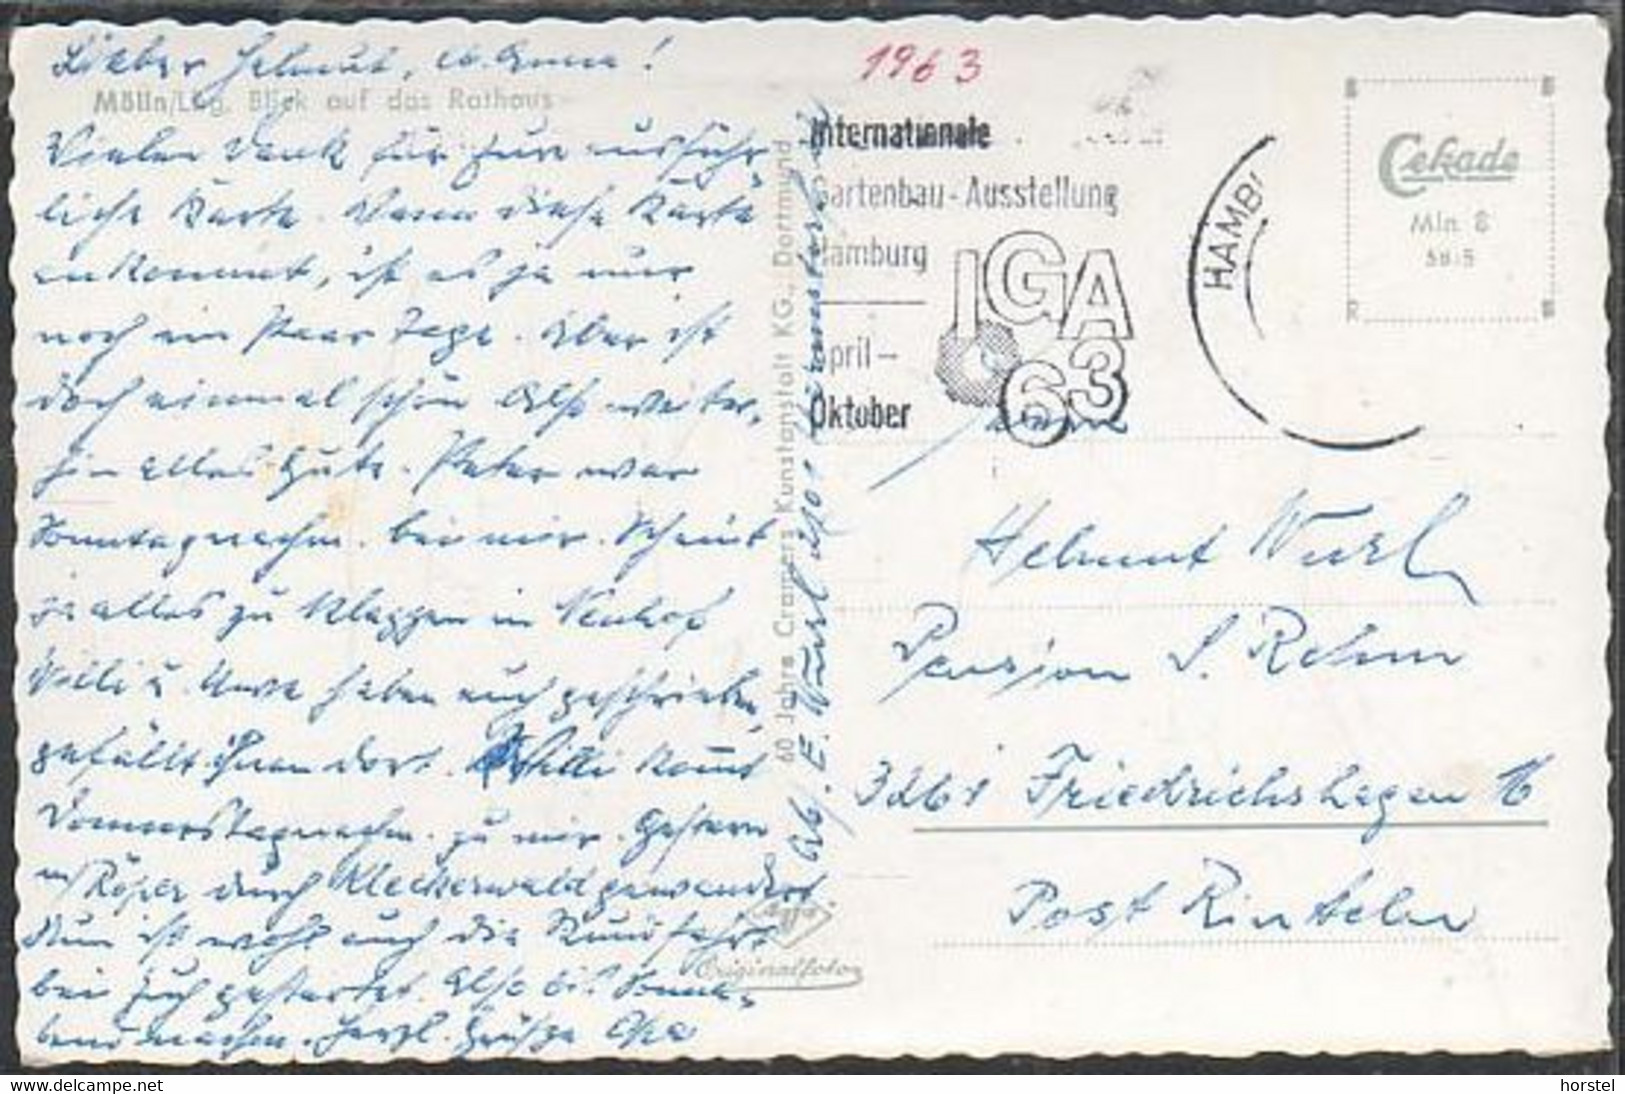 Lieber Helmut, u. Anna!
Mölln/Lbg. Blick auf das Rathaus
Vielen Dank für Eure ausführ-
liche Karte. Wenn diese Karte
ankommt, ist es ja nur
noch ein Paar Tage. Aber ist
doch einmal schön Also weiter-
hin alles Gute. Peter war
Sonntagnachm. bei mir. Scheint
ja alles zu klappen in Neuhof
Willi u. haben auch geschrieben,
gefällt ihnen dort. Willi kommt
Donnerstagnachm. zu mir. Gestern
m/ Röper durch Kleckerwald gewandert.
Nun ist wohl auch die Rundfahrt
bei Euch gestartet. Also bis Sonna-
bend machen. Herzl. Grüße Opa
60 Jahre Cramers Kunstanstalt KG., Dortmund
Agfa
Originalfoto
Abs. E. Wurl
1963
Internationale
Gartenbau-Ausstellung
Hamburg
IGA
63
April –
Oktober
HAMB
Cekade
Mln. 8
R
Helmut Wurl
Pension S. Rehm
3261 Friedrichshagen 16
Post Rinteln
horstel
www.delcampe.net